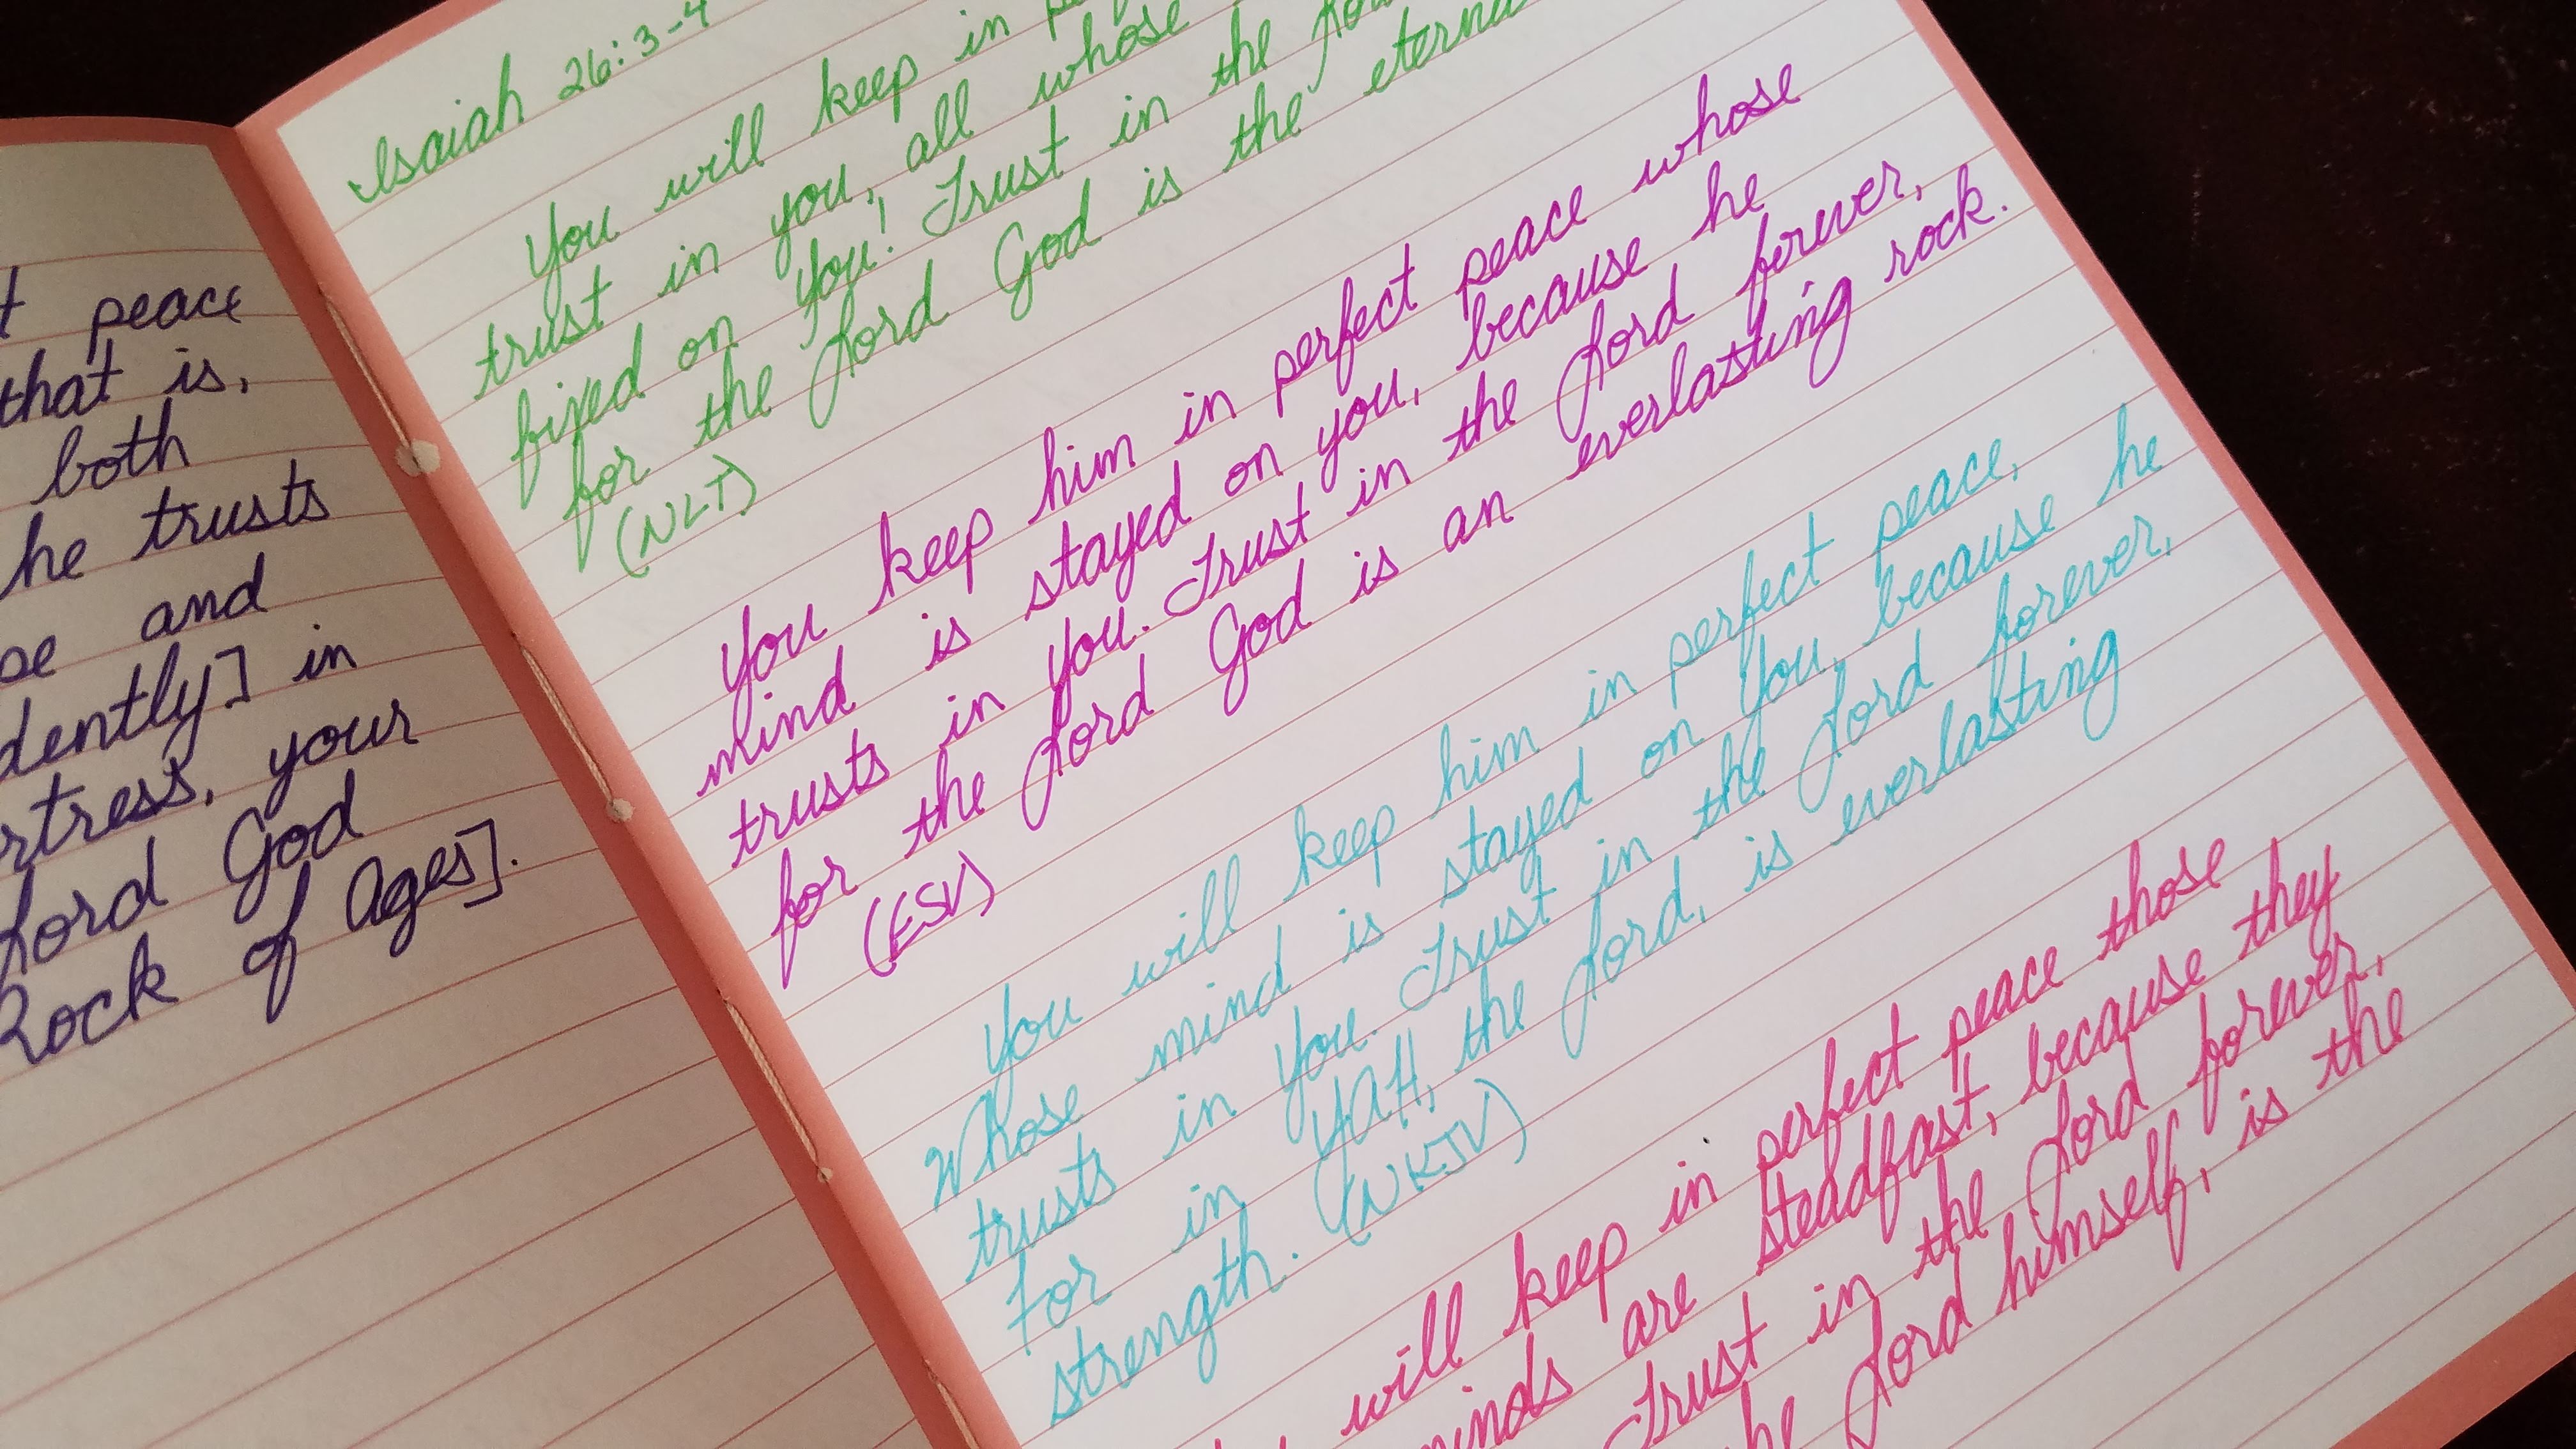 t peace
that is,
both
he trusts
se and
dently] in
rtress, your
Lord God
Rock of Ages].
Isaiah 26:3-4
You will keep in
trust in you, all whose
fixed on you! Trust in the
for the Lord God is the
(NLT)
You keep him in perfect peace whose
mind is stayed on you, because he
trusts in you. Trust in the Lord forever,
for the Lord God is an everlasting rock.
(ESV)
You will keep him in perfect peace,
Whose mind is stayed on You, because he
trusts in You. Trust in the Lord forever,
For in YAH, the Lord, is everlasting
strength. (NKJV)
will keep in perfect peace those
minds are steadfast, because they
Trust in the Lord forever,
Lord himself, is the